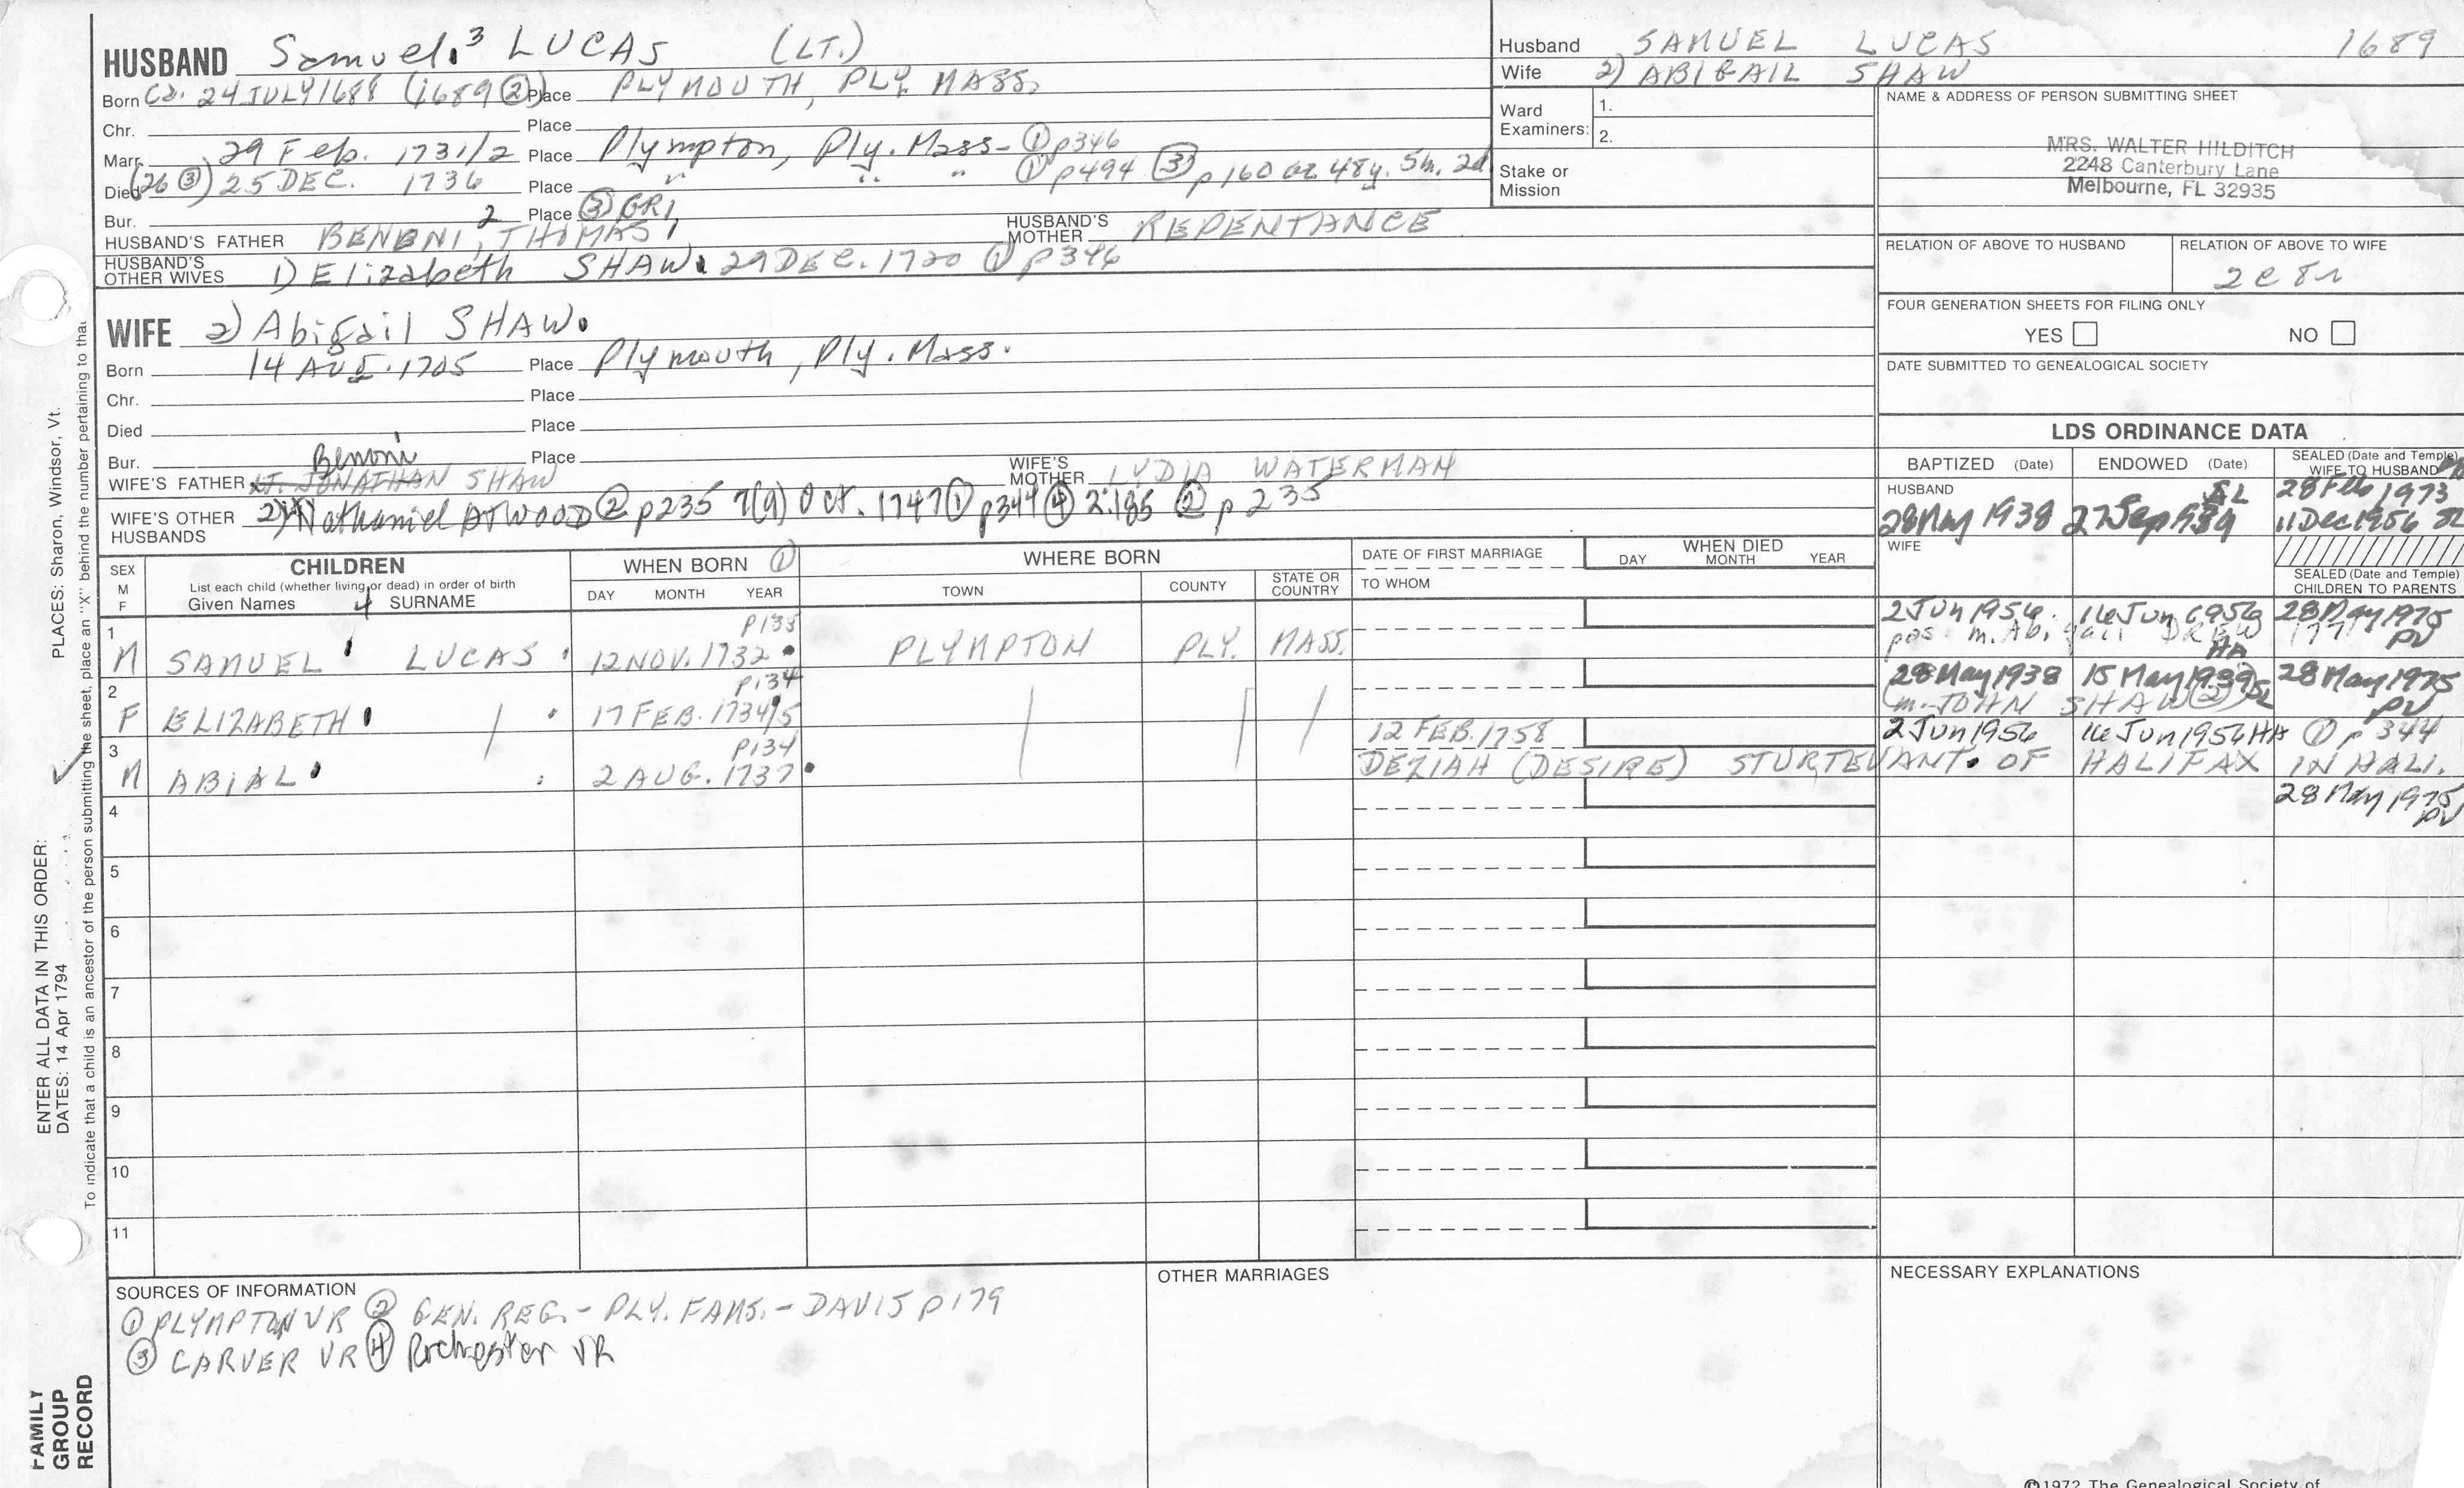 HUSBAND Samuel.³ LUCAS (LT.)
Born Ca. 24 JULY 1688 (1689 ②) Place PLYMOUTH, PLY. MASS.
Chr. Place
Marr. 29 Feb. 1731/2 Place Plympton, Ply. Mass- ① p346
Died (26 ③) 25 DEC. 1736 Place " " " ① p494 ③ p160 ae 48y. 5m. 2d
Bur. Place ③ GR1
HUSBAND'S FATHER BENONI,² THOMAS¹ HUSBAND'S MOTHER REPENTANCE
HUSBAND'S OTHER WIVES 1) Elizabeth SHAW. 29 DEC. 1720 ① p346
WIFE 2) Abigail SHAW.
Born 14 AUG. 1705 Place Plymouth, Ply. Mass.
Chr. Place
Died Place
Bur. Place
Benoni
WIFE'S FATHER LT. JONATHAN SHAW WIFE'S MOTHER LYDIA WATERMAN
WIFE'S OTHER HUSBANDS 2) Nathaniel ATWOOD ② p235 7(9) Oct. 1747 ① p344 ④ 2:185 ② p 235
Husband SAMUEL LUCAS 1689
Wife 2) ABIGAIL SHAW
Ward Examiners: 1.
2.
Stake or Mission
NAME & ADDRESS OF PERSON SUBMITTING SHEET
MRS. WALTER HILDITCH
2248 Canterbury Lane
Melbourne, FL 32935
RELATION OF ABOVE TO HUSBAND RELATION OF ABOVE TO WIFE
2c8r
FOUR GENERATION SHEETS FOR FILING ONLY
YES NO
DATE SUBMITTED TO GENEALOGICAL SOCIETY
LDS ORDINANCE DATA
BAPTIZED (Date) ENDOWED (Date) SEALED (Date and Temple) WIFE TO HUSBAND
HUSBAND SL 28 Feb 1973
28 May 1938 27 Sep 1939 11 Dec 1956 SL
WIFE
SEALED (Date and Temple) CHILDREN TO PARENTS
SEX M F CHILDREN
List each child (whether living or dead) in order of birth
Given Names 4 SURNAME
WHEN BORN ①
DAY MONTH YEAR
WHERE BORN
TOWN COUNTY STATE OR COUNTRY
DATE OF FIRST MARRIAGE
TO WHOM
WHEN DIED
DAY MONTH YEAR
1 P135 2 Jun 1956 14 Jun 1956 28 May 1975
M SAMUEL LUCAS 12 NOV. 1732 PLYMPTON PLY. MASS. pos. m. Abigail DREW 177 HA PV
2 P134 28 May 1938 15 May 1939 SL 28 May 1975
F ELIZABETH 17 FEB. 1734/5 (m. JOHN SHAW ②) PV
3 P134 12 FEB. 1758 2 Jun 1956 14 Jun 1956 HA ① p 344
M ABIAL 2 AUG. 1737 DEZIAH (DESIRE) STURTEVANT. OF HALIFAX IN HALI.
4 28 May 1975 PV
5
6
7
8
9
10
11
SOURCES OF INFORMATION
① PLYMPTON VR ② GEN. REG. - PLY. FAMS. - DAVIS p179
③ CARVER VR ④ Rochester VR
OTHER MARRIAGES
NECESSARY EXPLANATIONS
©1972 The Genealogical Society of
ENTER ALL DATA IN THIS ORDER:
DATES: 14 Apr 1794 PLACES: Sharon, Windsor, Vt.
To indicate that a child is an ancestor of the person submitting the sheet, place an "X" behind the number pertaining to that
FAMILY
GROUP
RECORD